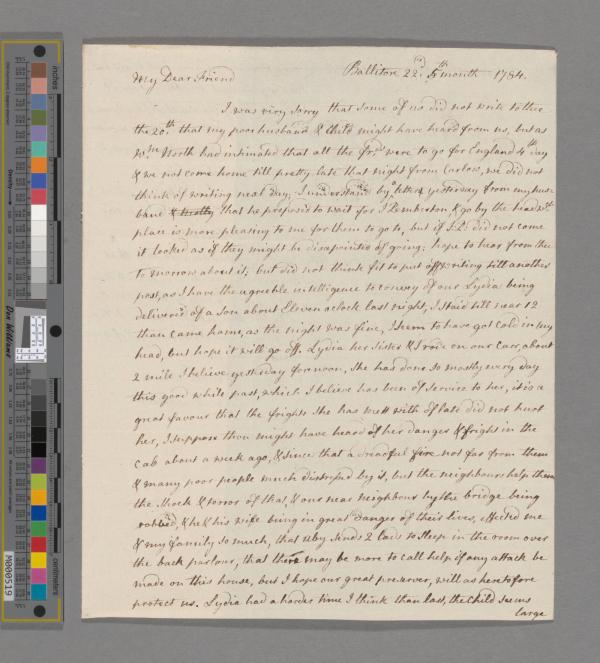 My Dear Friend
Ballitore 22d 5th month 1784.
I was very sorry that some of us did not write to thee
the 20th that my poor husband & Child might have heard from us, but as
Wm North had intimated that all the frds were to go for England 4th day
& we not come home till pretty late that night from Carlow, we did not
think of writing next day, I understand by yesterday from my hus=
band that he proposed to wait for J Pemberton, & go by the head wch
place is more pleasing to me for them to go to, but if J.P. did not come
it looked as if they might be disapointed of going; hope to hear from thee
to morrow about it; but did not think fit to put off writing till another
post, as I have the agreeble intelligence to convey of our Lydia being
deliver'd of a Son about Eleven oclock last night, I staid till near 12
than came home, as the night was fine, I seem to have got cold in my
head, but hope it will go off. Lydia her Sister & I rode on our Carr, about
2 mile I believe yesterday fornoon, She has done so mostly every day
this good while past, which I believe has been of service to her, it is a
great favour that the frights She has mett with of late did not hurt
her, I suppose thou might have heard of her danger & fright in the
cab about a week ago, & since that a dreadful fire not far from them
& many poor people much distressed by it, but the neighbours help them
the Shock & terror of that, & our near neighbour by the bridge being
robbed, & he & his wife being in great danger of their lives, effected me
& my family so much, that sends 2 lads to Sleep in the room over
the back parlour, that there may be more to call help if any attack be
made on this house, but I hope our great preserver, will as heretofore
protect us. Lydia had a harder time I think than last, the Child seems
large
inches
centimeters
Density
Don Williams
M000519